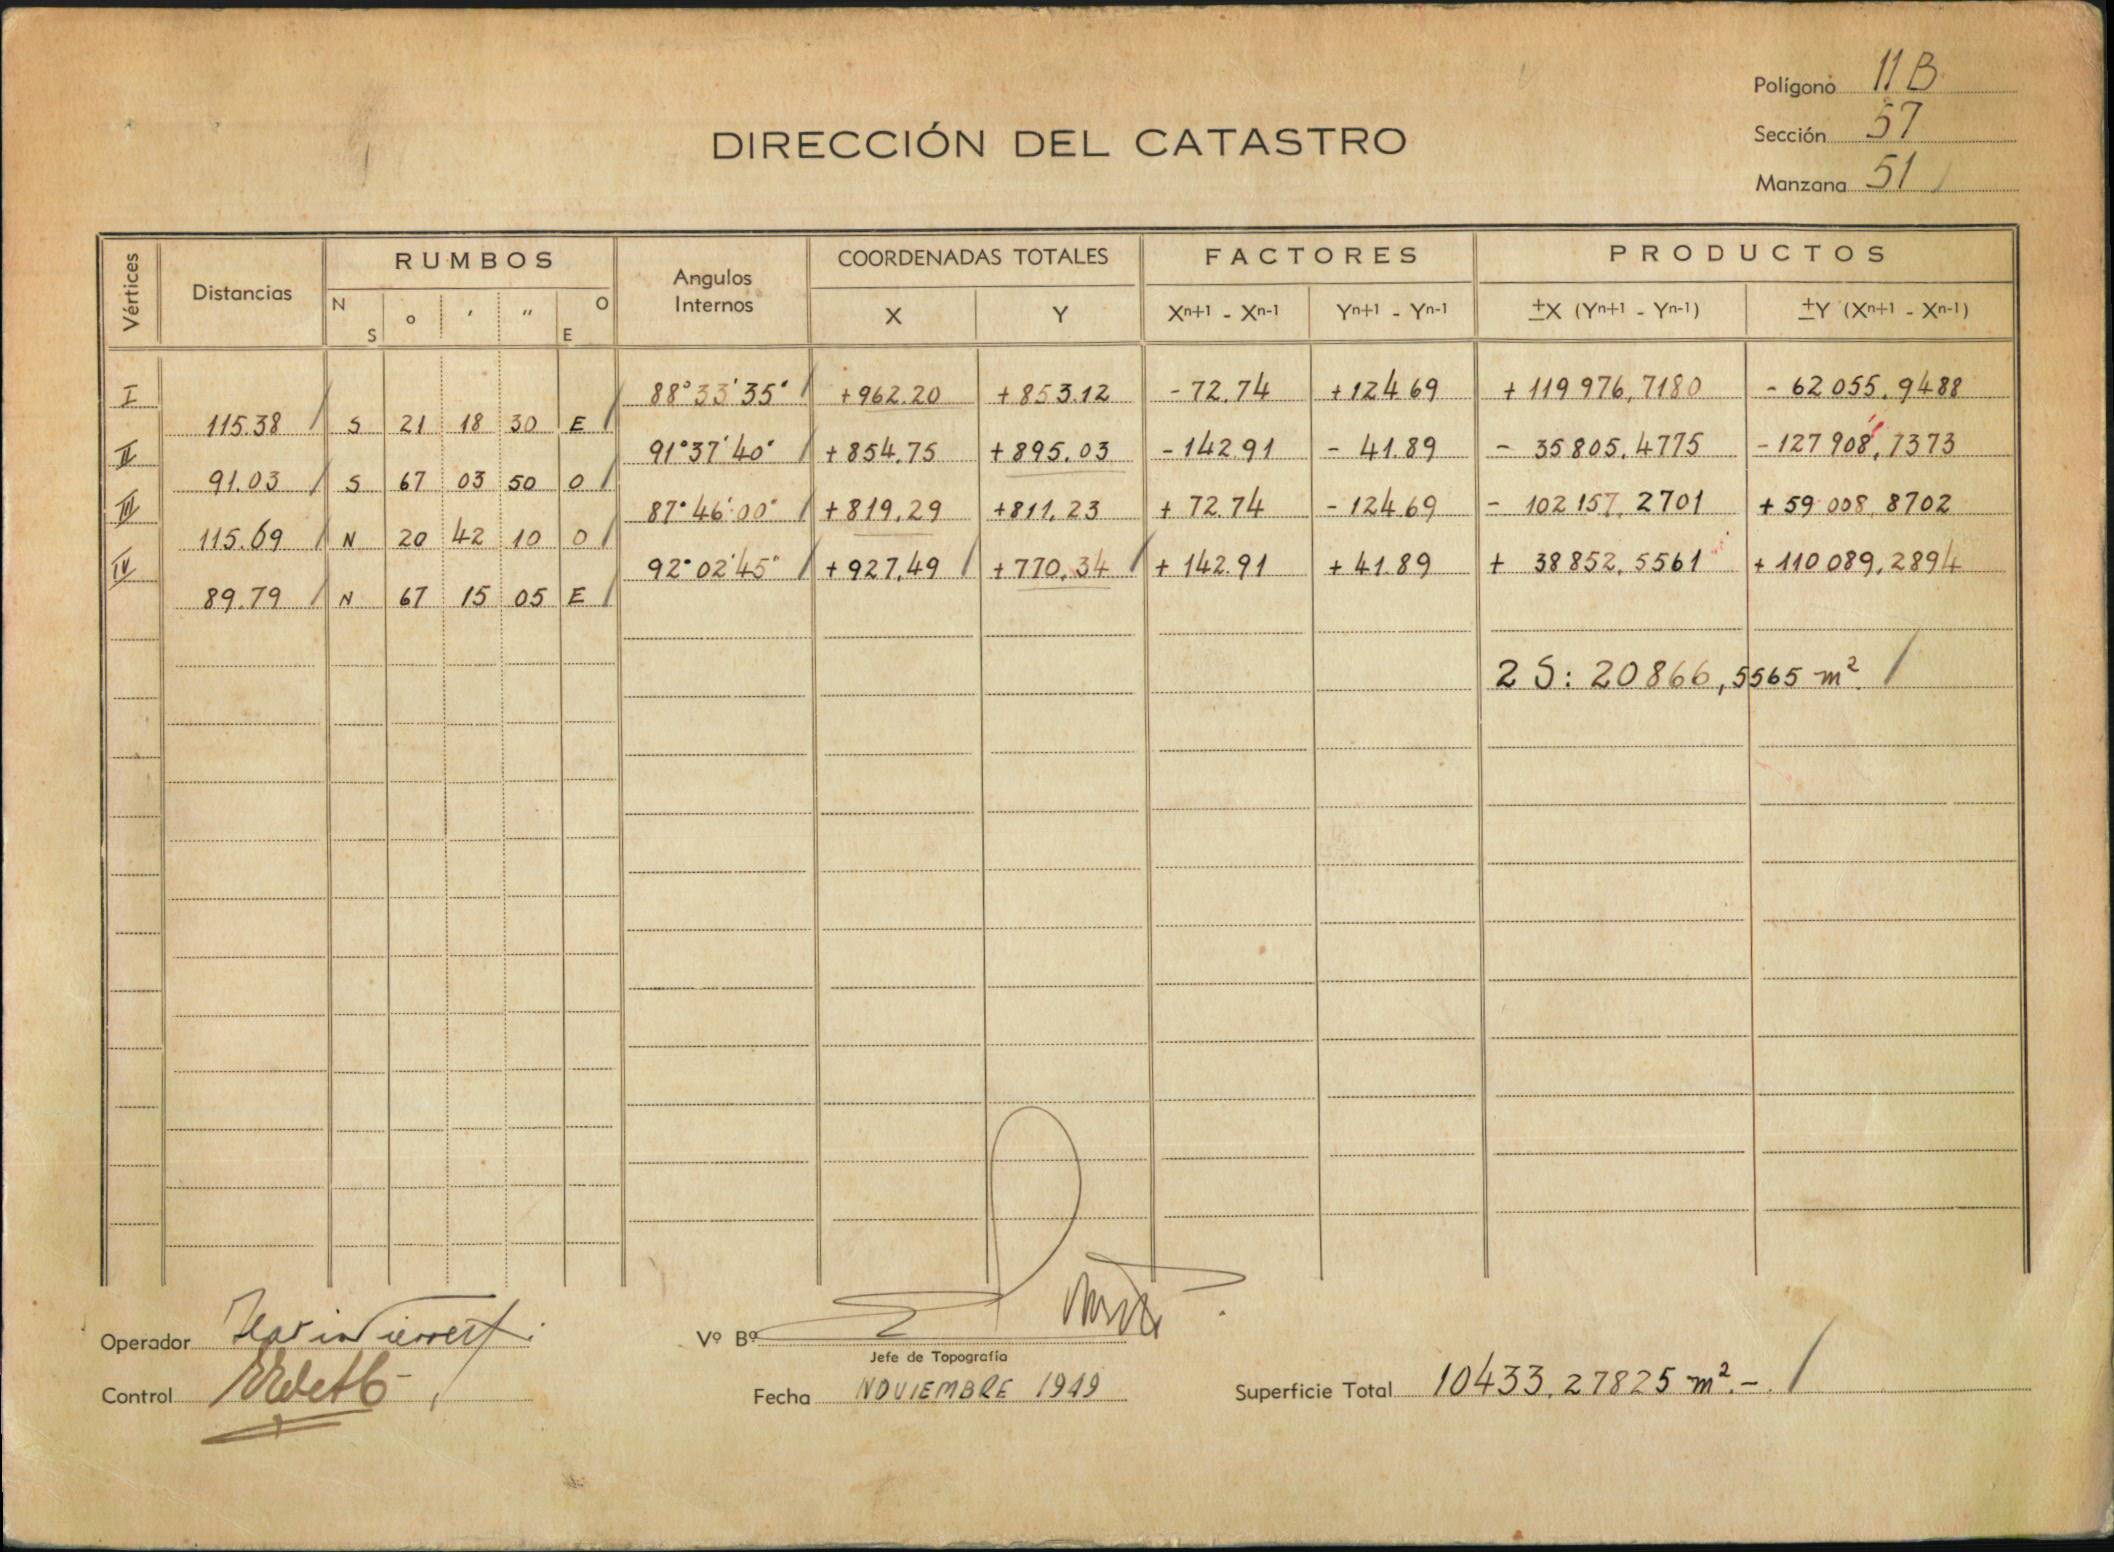 Polígono 11 B
Sección 57
Manzana 51
DIRECCIÓN DEL CATASTRO
Vértices Distancias RUMBOS Angulos Internos COORDENADAS TOTALES FACTORES PRODUCTOS
N S ° ' " O E X Y Xn+1 - Xn-1 Yn+1 - Yn-1 ±X (Yn+1 - Yn-1) ±Y (Xn+1 - Xn-1)
I 88°33'35" +962.20 +853.12 -72.74 +124.69 +119976,7180 -62055,9488
115.38 S 21 18 30 E
II 91°37'40" +854.75 +895.03 -142.91 -41.89 -35805,4775 -127908,7373
91.03 S 67 03 50 O
III 87°46'00" +819,29 +811,23 +72.74 -124.69 -102157,2701 +59008,8702
115.69 N 20 42 10 O
IV 92°02'45" +927,49 +770,34 +142.91 +41.89 +38852,5561 +110089,2894
89.79 N 67 15 05 E
2 S: 20866,5565 m²
Operador
Vº Bº
Jefe de Topografía
Control
Fecha NOVIEMBRE 1949
Superficie Total 10433,27825 m².-